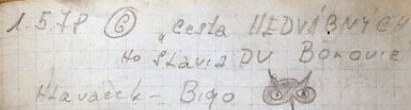 1.5.78 6 „Cesta HEDVÁBNÝCH
Ho Slavia DU Bohovic
Hlaváček - Bigo